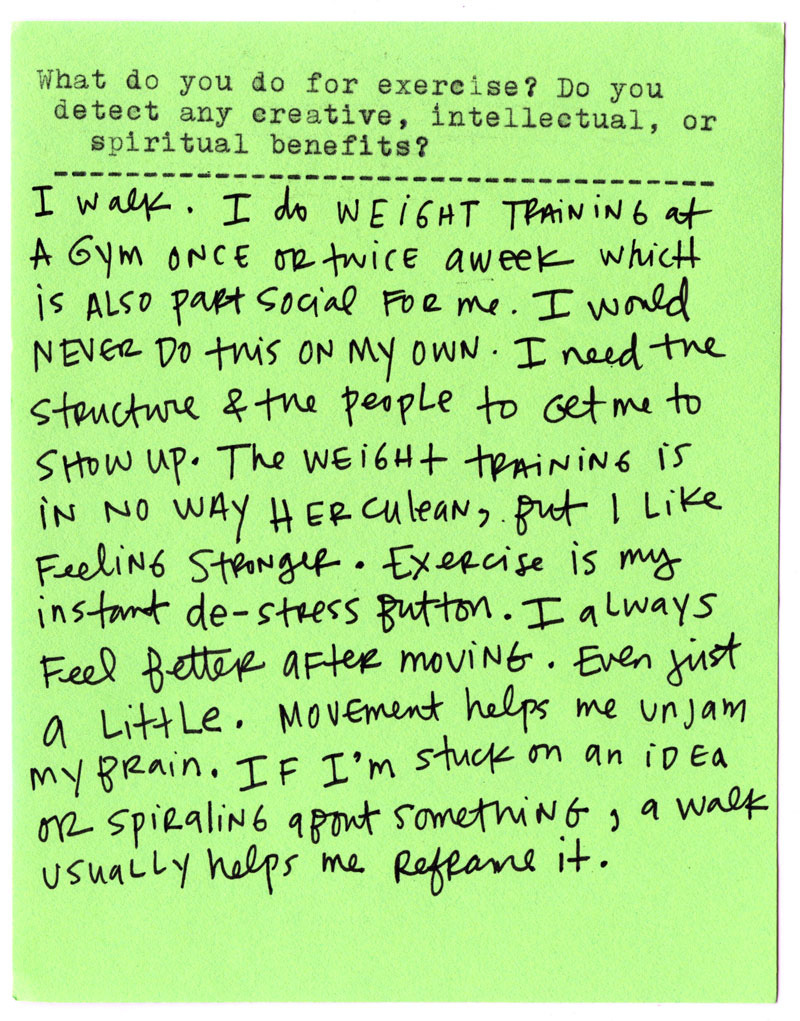 What do you do for exercise? Do you
detect any creative, intellectual, or
spiritual benefits?
I walk. I do WEiGHT TRAiNiNG at
A Gym ONCE OR twice aweek which
is ALSO part Social FOR me. I would
NEVER DO this ON MY OWN. I need the
Structure & the people to Get me to
SHOW UP. The WEiGHt tRAiNiNG is
iN NO WAY HERCuleaN, but I Like
FeeLiNG StroNger. Exercise is my
instant de-stress Button. I aLways
Feel Better after moviNG. Even just
a Little. Movement helps me unjam
my Brain. IF I'm stuck on an iDEa
OR spiRaliNG about somethiNG, a walk
usuaLLy helps me Reframe it.